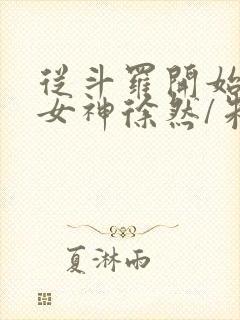 從斗羅開始
女神徐然/朱
夏淋雨